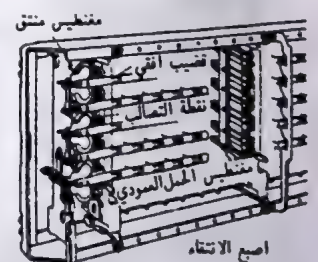 مغنطيس منتق
قضيب افقي
نقطة التصالب
مغنطيس الحبل العمودي
اصبع الانتقاء